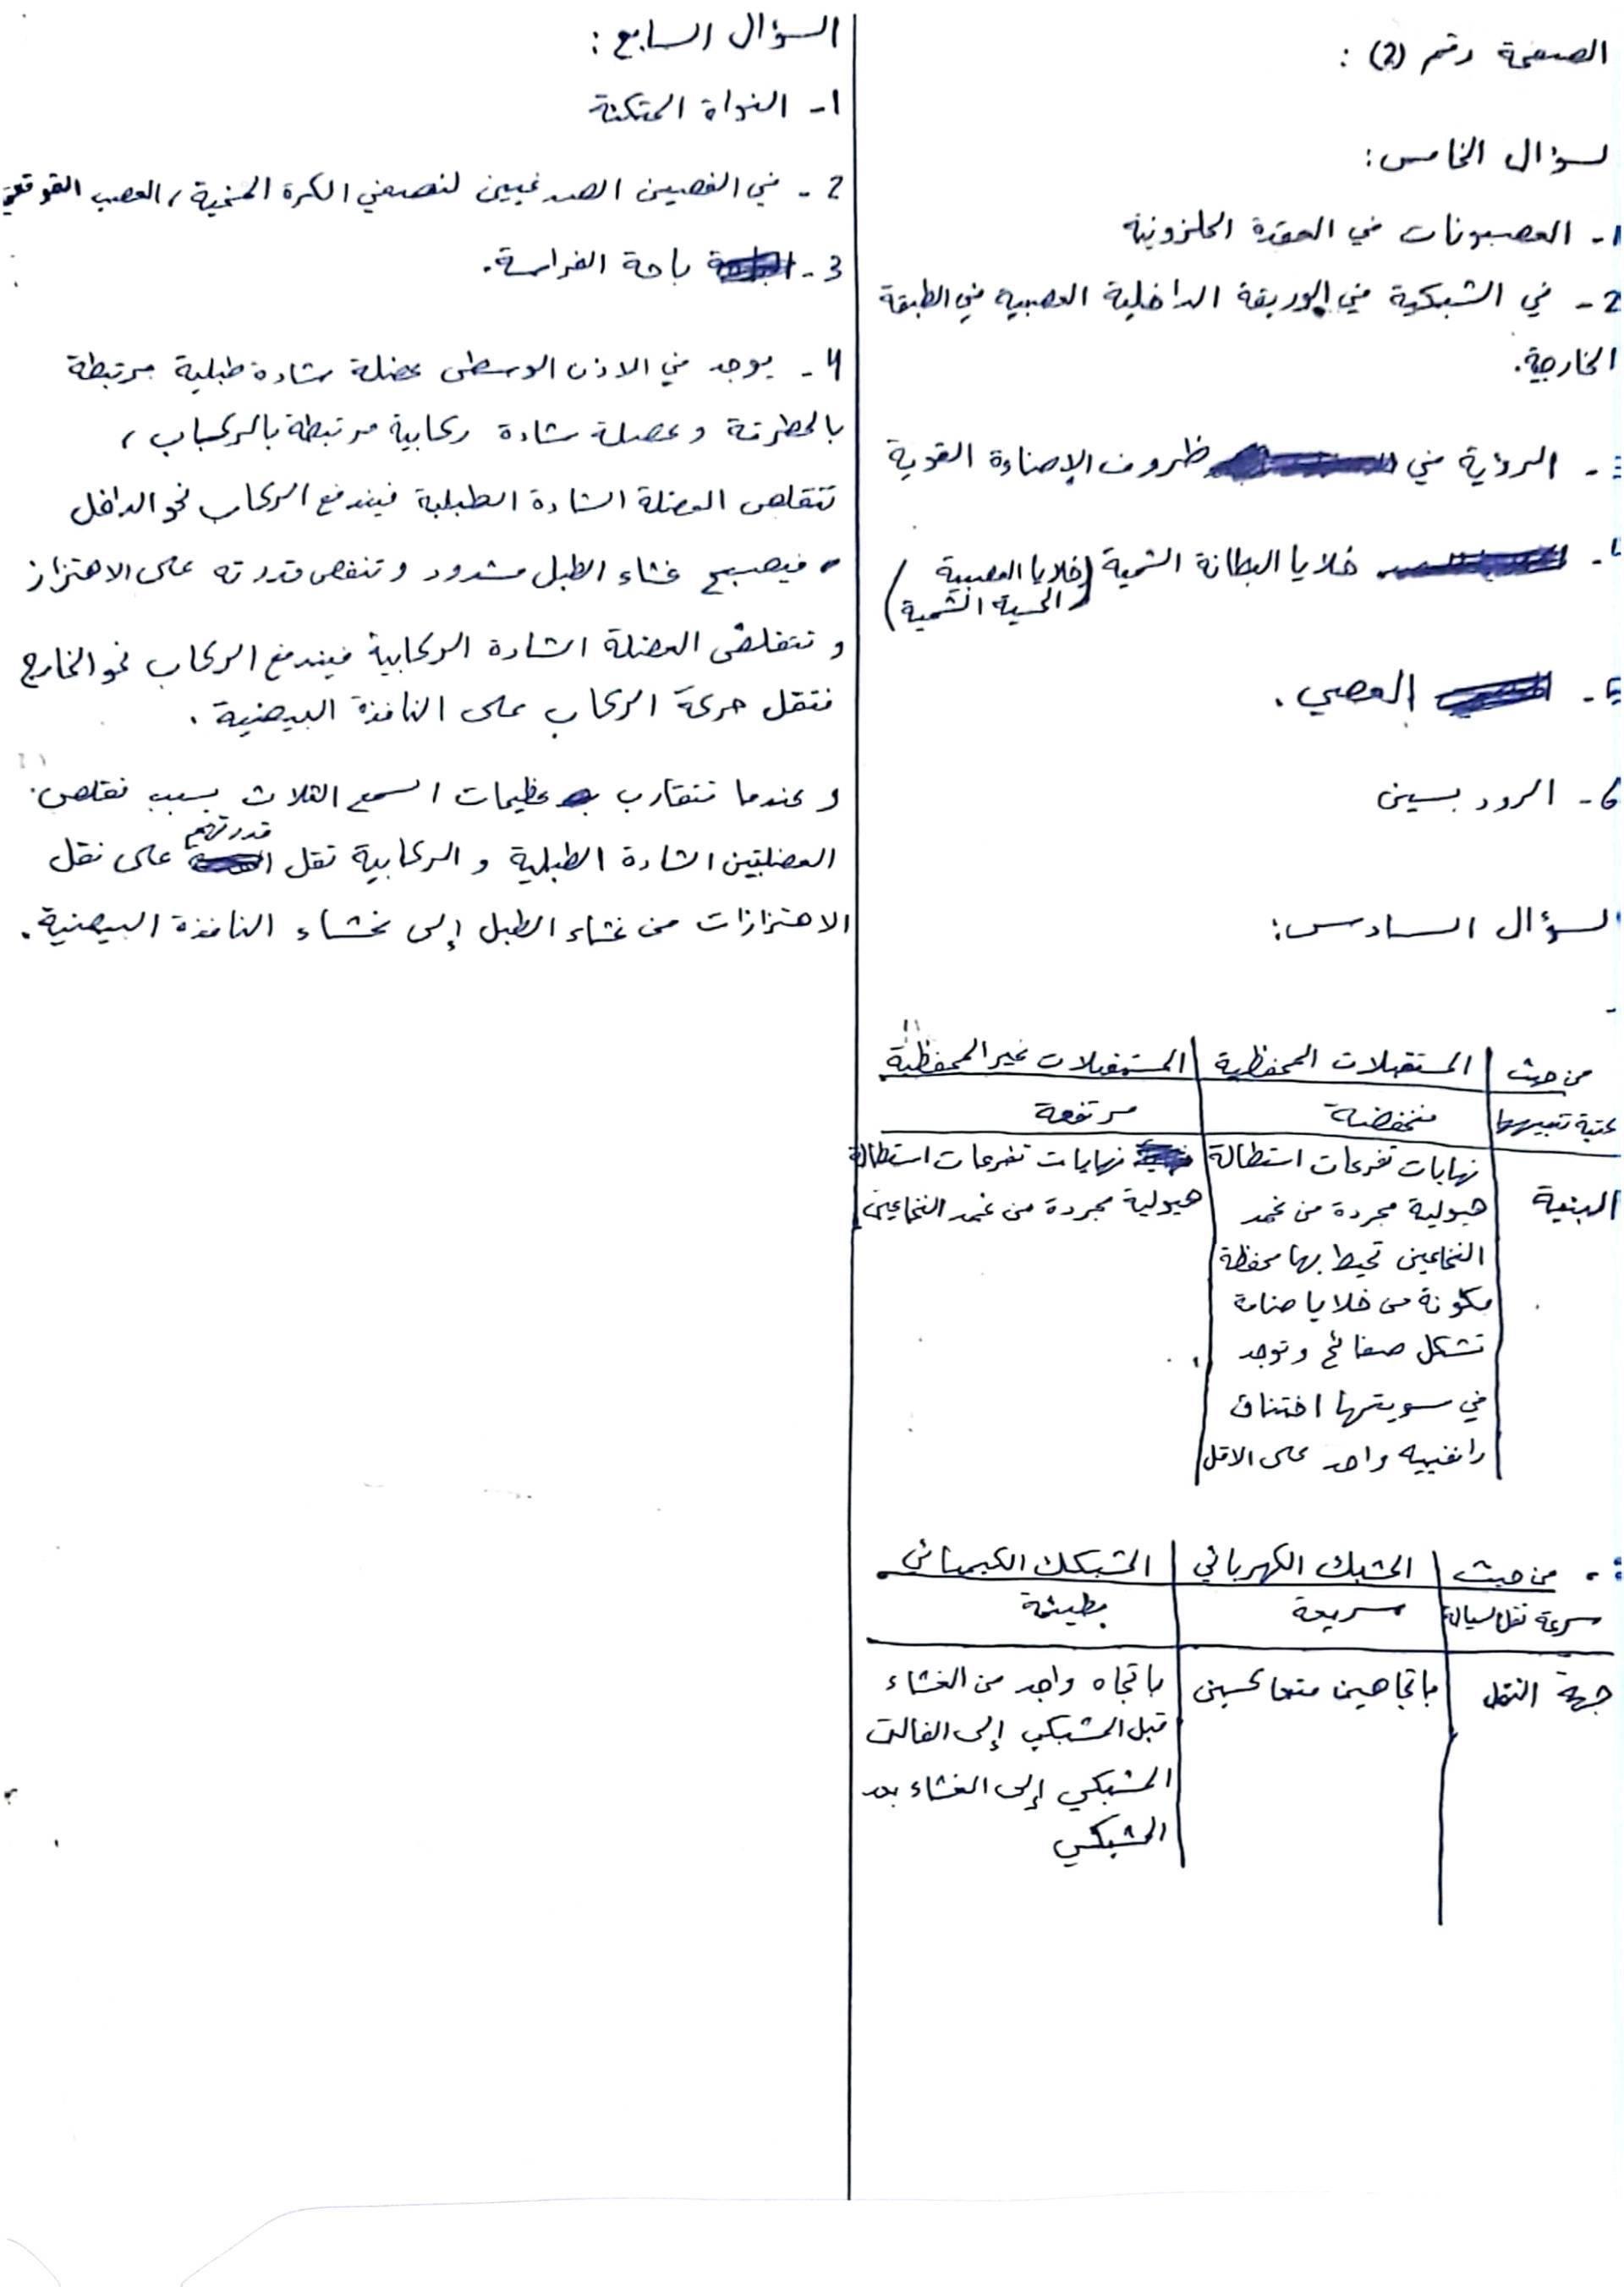 الصفحة رقم (2) :
لسؤال الخامس:
1- العصبونات في العقدة الحلزونية
2- في الشبكية في الوريقة الداخلية العصبية في الطبقة
الخارجية.
- الرؤية في ظروف الإضاءة القوية
- خلايا البطانة الشمية (خلايا العصبية
الحسية الشمية)
- العصي .
6- الرودبسين
لسؤال السادس:
من حيث | المستقبلات المحفظية | المستقبلات غير المحفظية
عتبة تنبيهها | منخفضة | مرتفعة
البنية | نهايات تفرعات استطالة | نهايات تفرعات استطالة
هيولية مجردة من غمد | هيولية مجردة من غمد النخاعين
النخاعين تحيط بها محفظة
مكونة من خلايا ضامة
تشكل صفائح وتوجد
في سويتها اختناق
رانفييه واحد على الاقل
من حيث | المشبك الكهربائي | المشبك الكيميائي
سرعة نقل السيالة | سريعة | بطيئة
جهة النقل | باتجاهين متعاكسين | باتجاه واحد من الغشاء
قبل المشبكي إلى الفالق
المشبكي إلى الغشاء بعد
المشبكي
السؤال السابع :
1- النواة المتكئة
2- في الفصين الصدغيين لنصفي الكرة المخية ، العصب القوقعي
3- باحة الفراسة.
4- يوجد في الاذن الوسطى عضلة شادة طبلية مرتبطة
بالمطرقة وعضلة شادة ركابية مرتبطة بالركاب ،
تتقلص العضلة الشادة الطبلية فيندفع الركاب نحو الداخل
فيصبح غشاء الطبل مشدود وتنقص قدرته على الاهتزاز
و تتقلص العضلة الشادة الركابية فيندفع الركاب نحو الخارج
فتقل حركة الركاب على النافذة البيضية .
وعندما تتقارب عظيمات السمع الثلاث بسبب تقلص
العضلتين الشادة الطبلية و الركابية تقل قدرتهم على نقل
الاهتزازات من غشاء الطبل إلى غشاء النافذة البيضية .